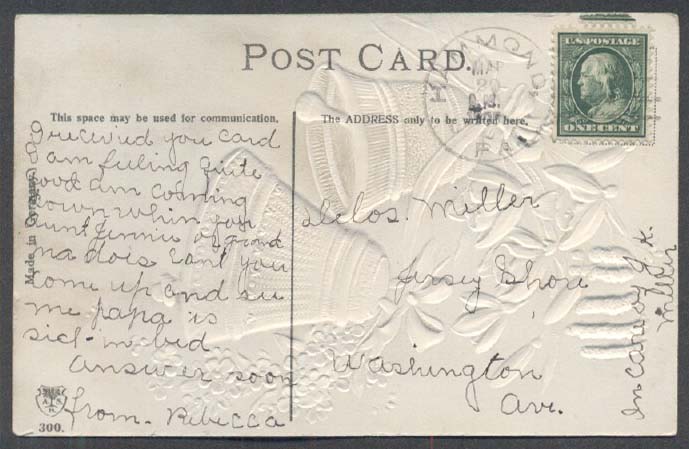 POST CARD.
HAMMOND
MAR
30
PA.
U.S. POSTAGE
ONE CENT
This space may be used for communication.
The ADDRESS only to be written here.
I received you card
I am feeling quite
good am coming
down when you
aunt Jennie & grand
ma does cant you
come up and see
me papa is
sick in bed.
Answer soon
from. Rebecca
Delos. Miller
Jersey Shore
Washington
Ave.
In care of J. K.
Miller
Made in Germany.
A. S.
B.
300.